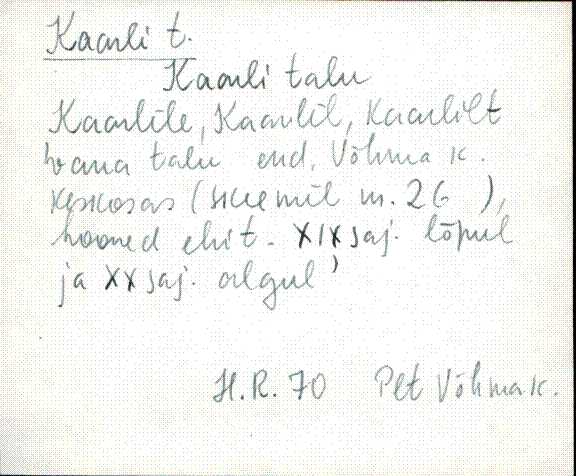 Kaarli t.
Kaarli talu
Kaarlile, Kaarlil, Kaarlilt
vana talu end. Võhma k.
keskosas (skeemil m. 26 ),
hooned ehit. XIX saj. lõpul
ja XX saj. algul)
H.R. 70 Pet Võhma k.